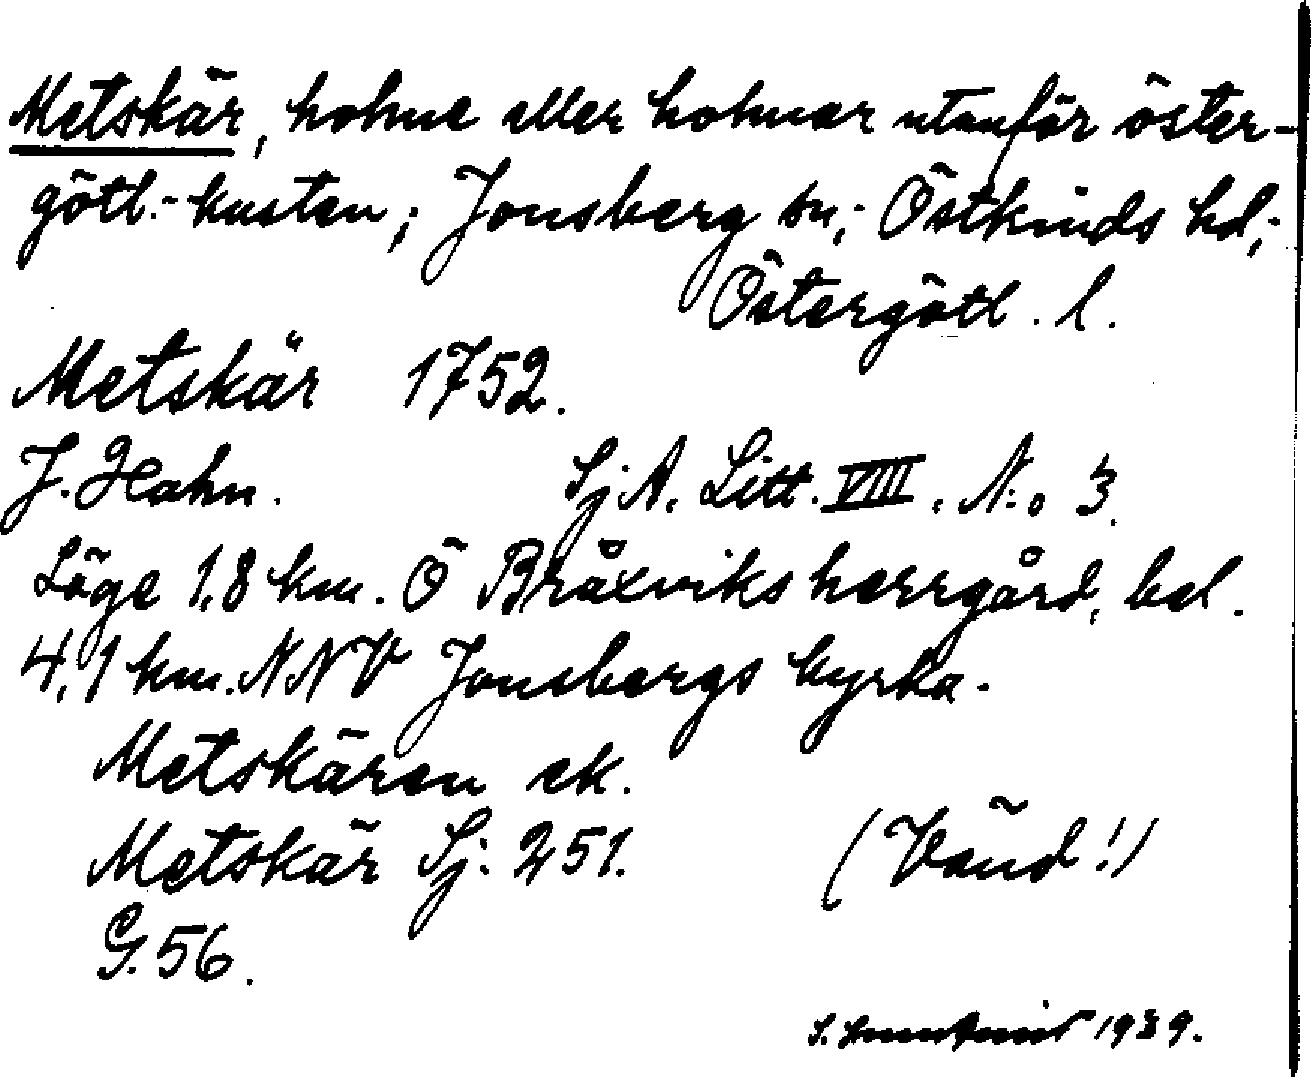 Metskär, holme eller holmar utanför öster-
götl.-kusten; Jonsberg sn; Östkinds hd;
Östergötl. l.
Metskär 1752.
J. Hahn. SjA. Litt. VIII. N:o 3.
Läge 1,8 km. Ö Bråxviks herrgård, bel.
4,1 km. NNV Jonsbergs kyrka.
Metskären ek.
Metskär Sj. 251. (Vänd!)
G. 56.
S. 1939.